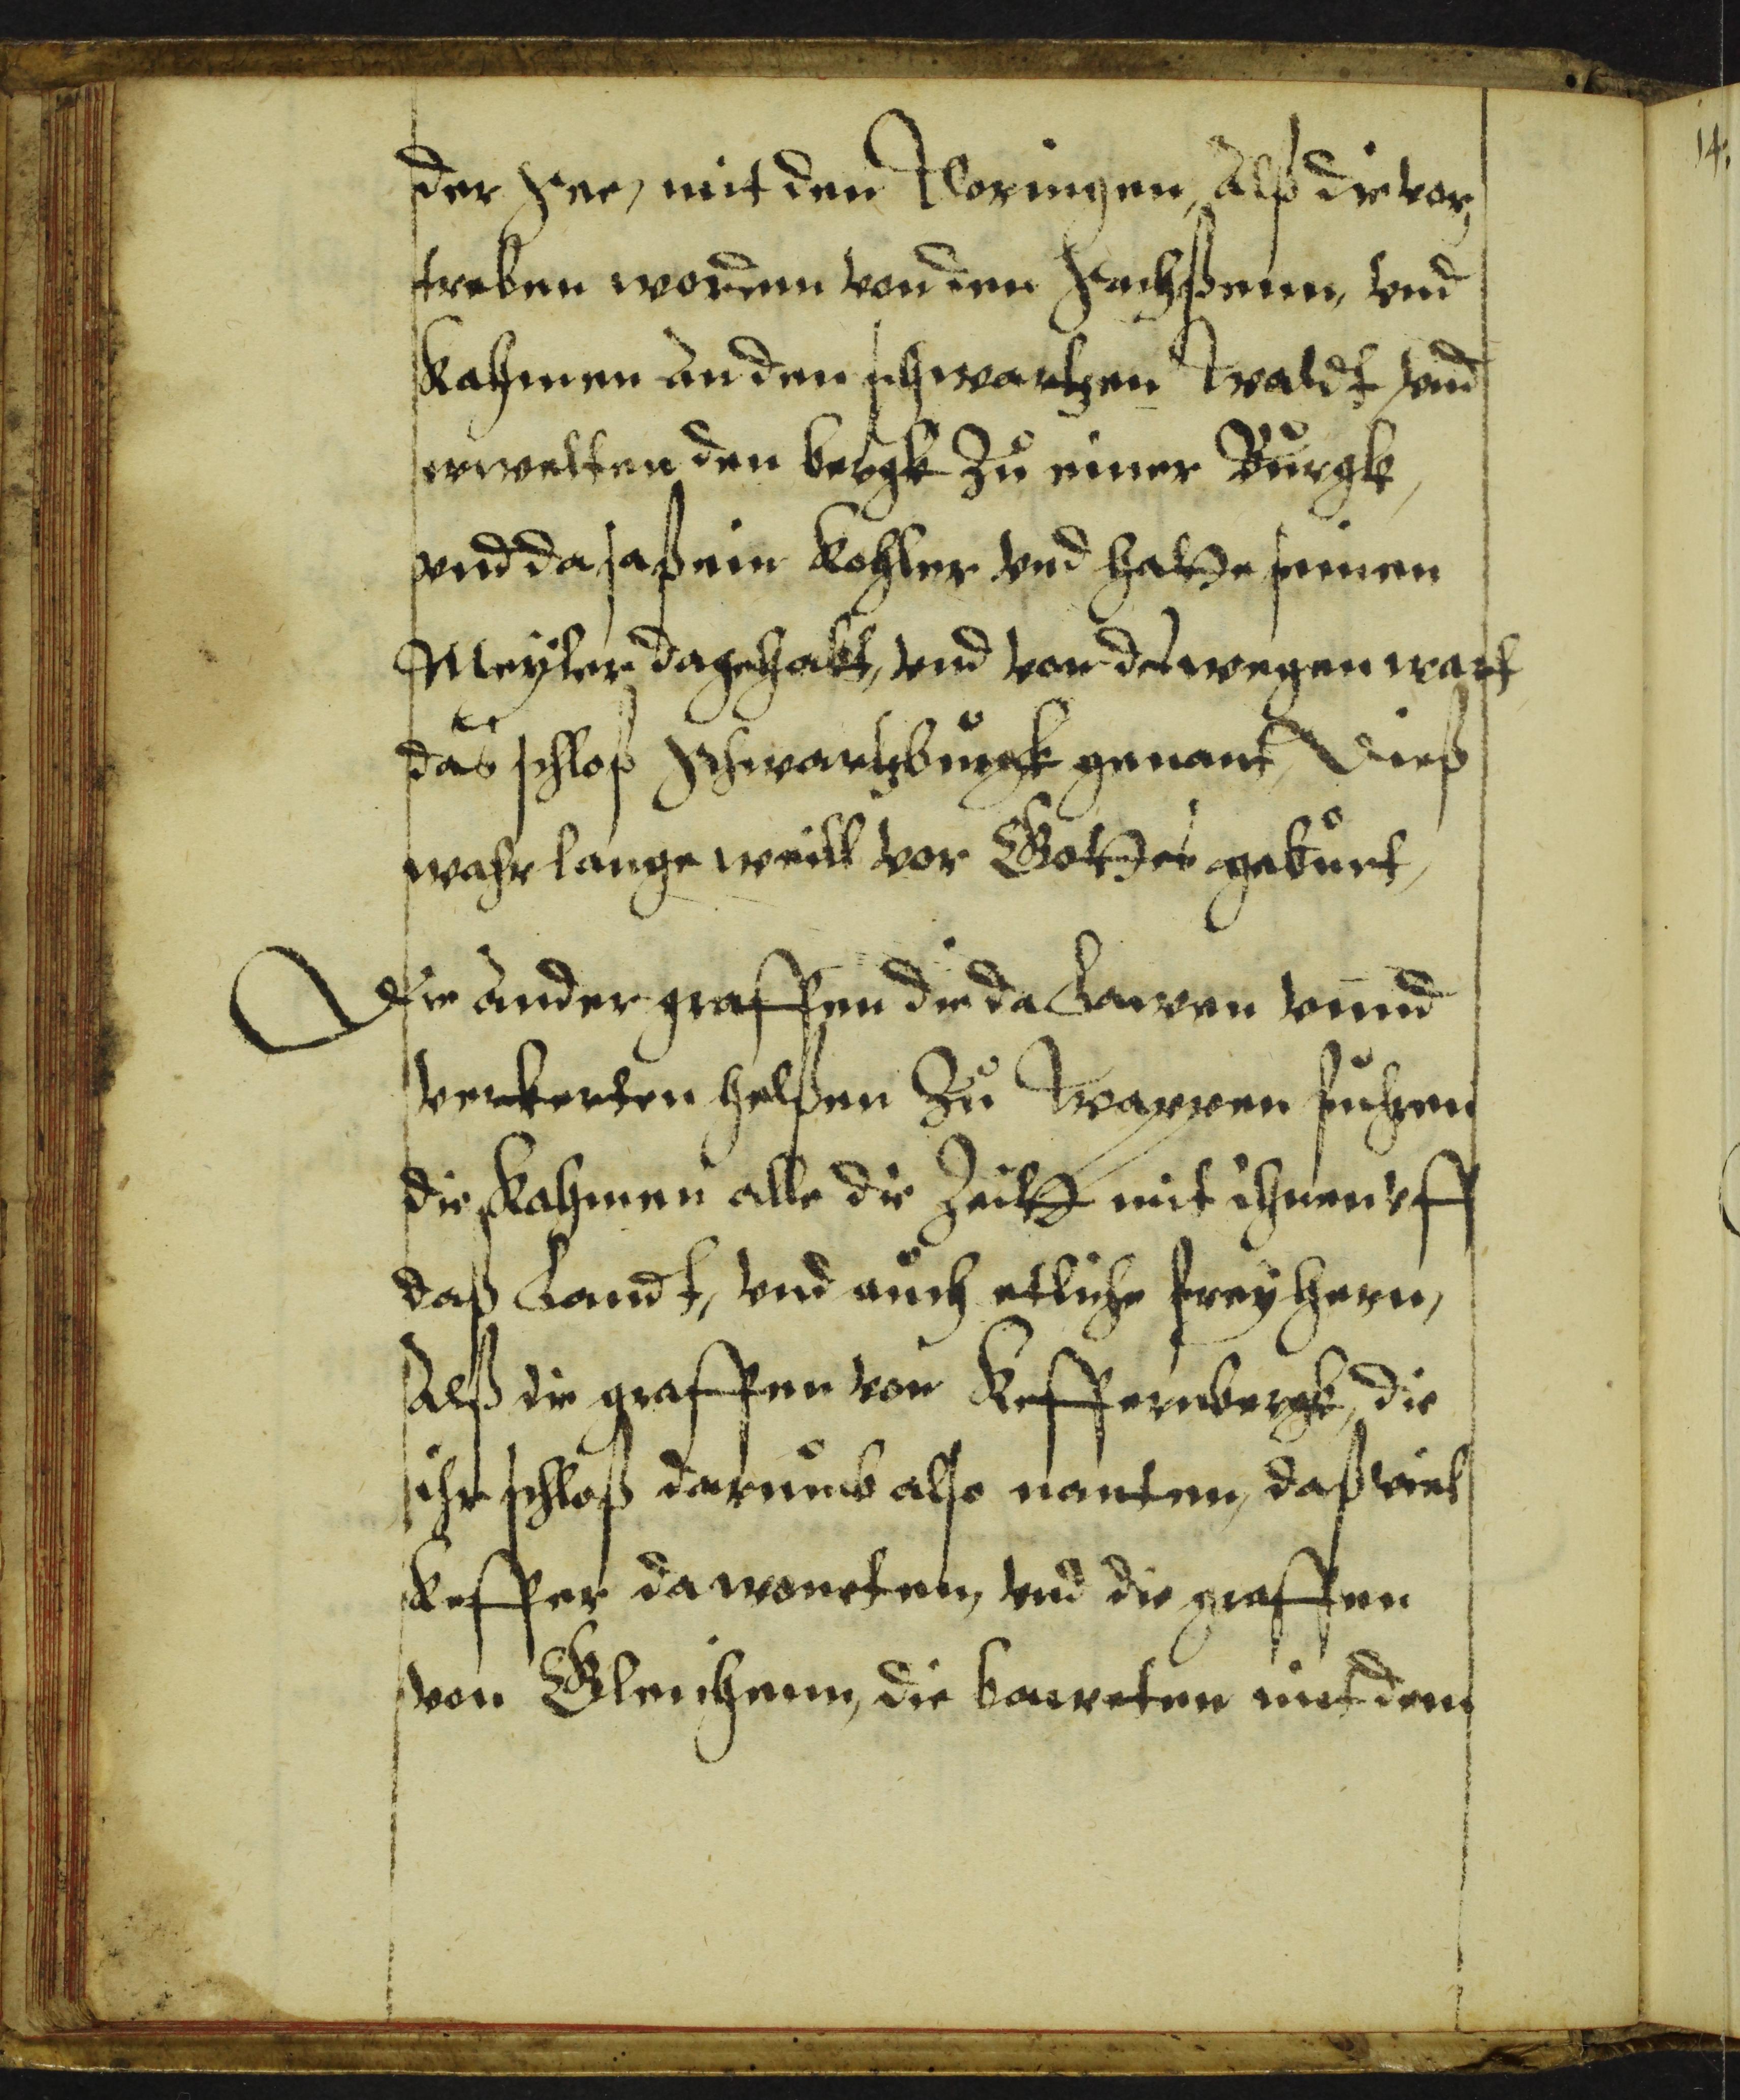 der See, mit den Doringen, Alß die vor
treben worden von den Sachßenn, vnd
Kahmen an den schwartzen Waldt, vnd
erwelten den bergk Zu einer Burgk,
vnd da saß ein Kohler vnd hatte seinen
Meyler da gehabt, vnd von deswegen wart
das schloß Schwartzburgk genant, Dieß
wahr lange weill vor Gottes geburt,
Die ander graffen die da Lawen vnnd
verkerten helßen Zu Wappen fuhren
die Kahmen alle die Zeitt mit ihnen vff
daß Landt, vnd auch etliche freyhern,
Alß die graffen von Keffernbergk, die
ihr schloß darumb also nanten, daß viel
Keffer da woneten, vnd die graffen
von Gleichenn, die baweten mit dem
14.